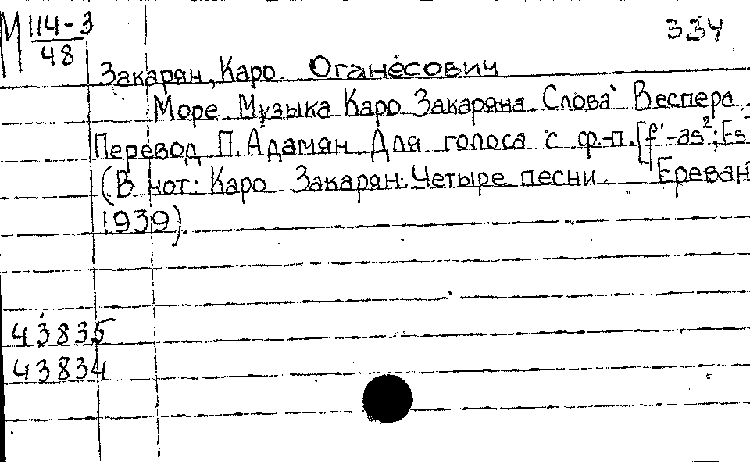 М 114-3 334
48
Закарян, Каро Оганесович
Море Музыка Каро Закаряна Слова Веспера.
Перевод П. Адамян Для голоса с ф.-п. [f'-as²; Es
(В нот: Каро Закарян. Четыре песни. Ереван
1939)
43835
43834